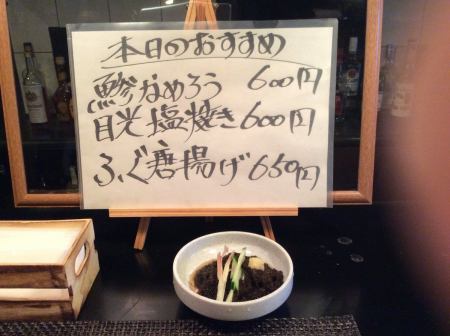 本日のおすすめ
鯵なめろう 600円
目光塩焼き 600円
ふぐ唐揚げ 650円